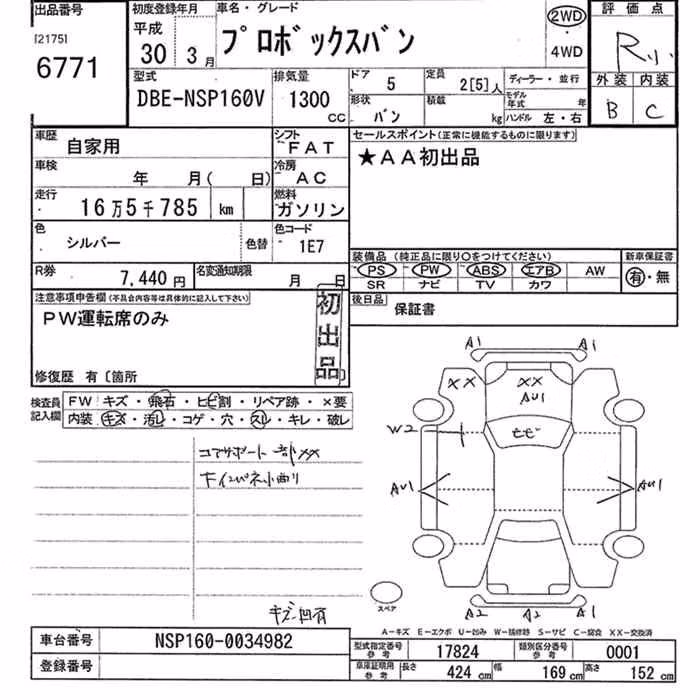 出品番号
[2175]
6771
初度登録年月
平成
30 3月
車名・グレード
プロボックスバン
2WD
・
4WD
評価点
R
外装 内装
B C
型式
DBE-NSP160V
排気量
1300
CC
ドア 5
定員 2[5]人
形状 バン
積載 kg
ディーラー・並行
モデル年式 年
ハンドル 左・右
車歴 自家用
シフト FAT
車検 年 月( 日)
冷房 AC
走行 16万5千785 km
燃料 ガソリン
色 シルバー 色替
色コード 1E7
R券 7,440円
名変通知期限 月 日
セールスポイント(正常に機能するものに限ります)
★AA初出品
装備品 (純正品に限り○をつけてください)
PS PW ABS エアB AW
SR ナビ TV カワ
新車保証書
有・無
後日品 保証書
注意事項申告欄(不具合内容等は具体的に記入して下さい)
PW運転席のみ
初出品
修復歴 有〔箇所
検査員記入欄
FW: キズ・飛石・ヒビ割・リペア跡・×要
内装: キズ・汚レ・コゲ・穴・スレ・キレ・破レ
コアサポート一部XX
下インパネ小曲り
キズ凹有
A1 A1
XX XX
AU1
W2
ヒビ
AU1 AU1
A2 A2 A1
スペア
A-キズ E-エクボ U-凹み W-補修跡 S-サビ C-腐食 XX-交換済
車台番号 NSP160-0034982
登録番号
型式指定番号 参考 17824
類別区分番号 参考 0001
車庫証明用 参考 長さ 424cm 幅 169cm 高さ 152cm